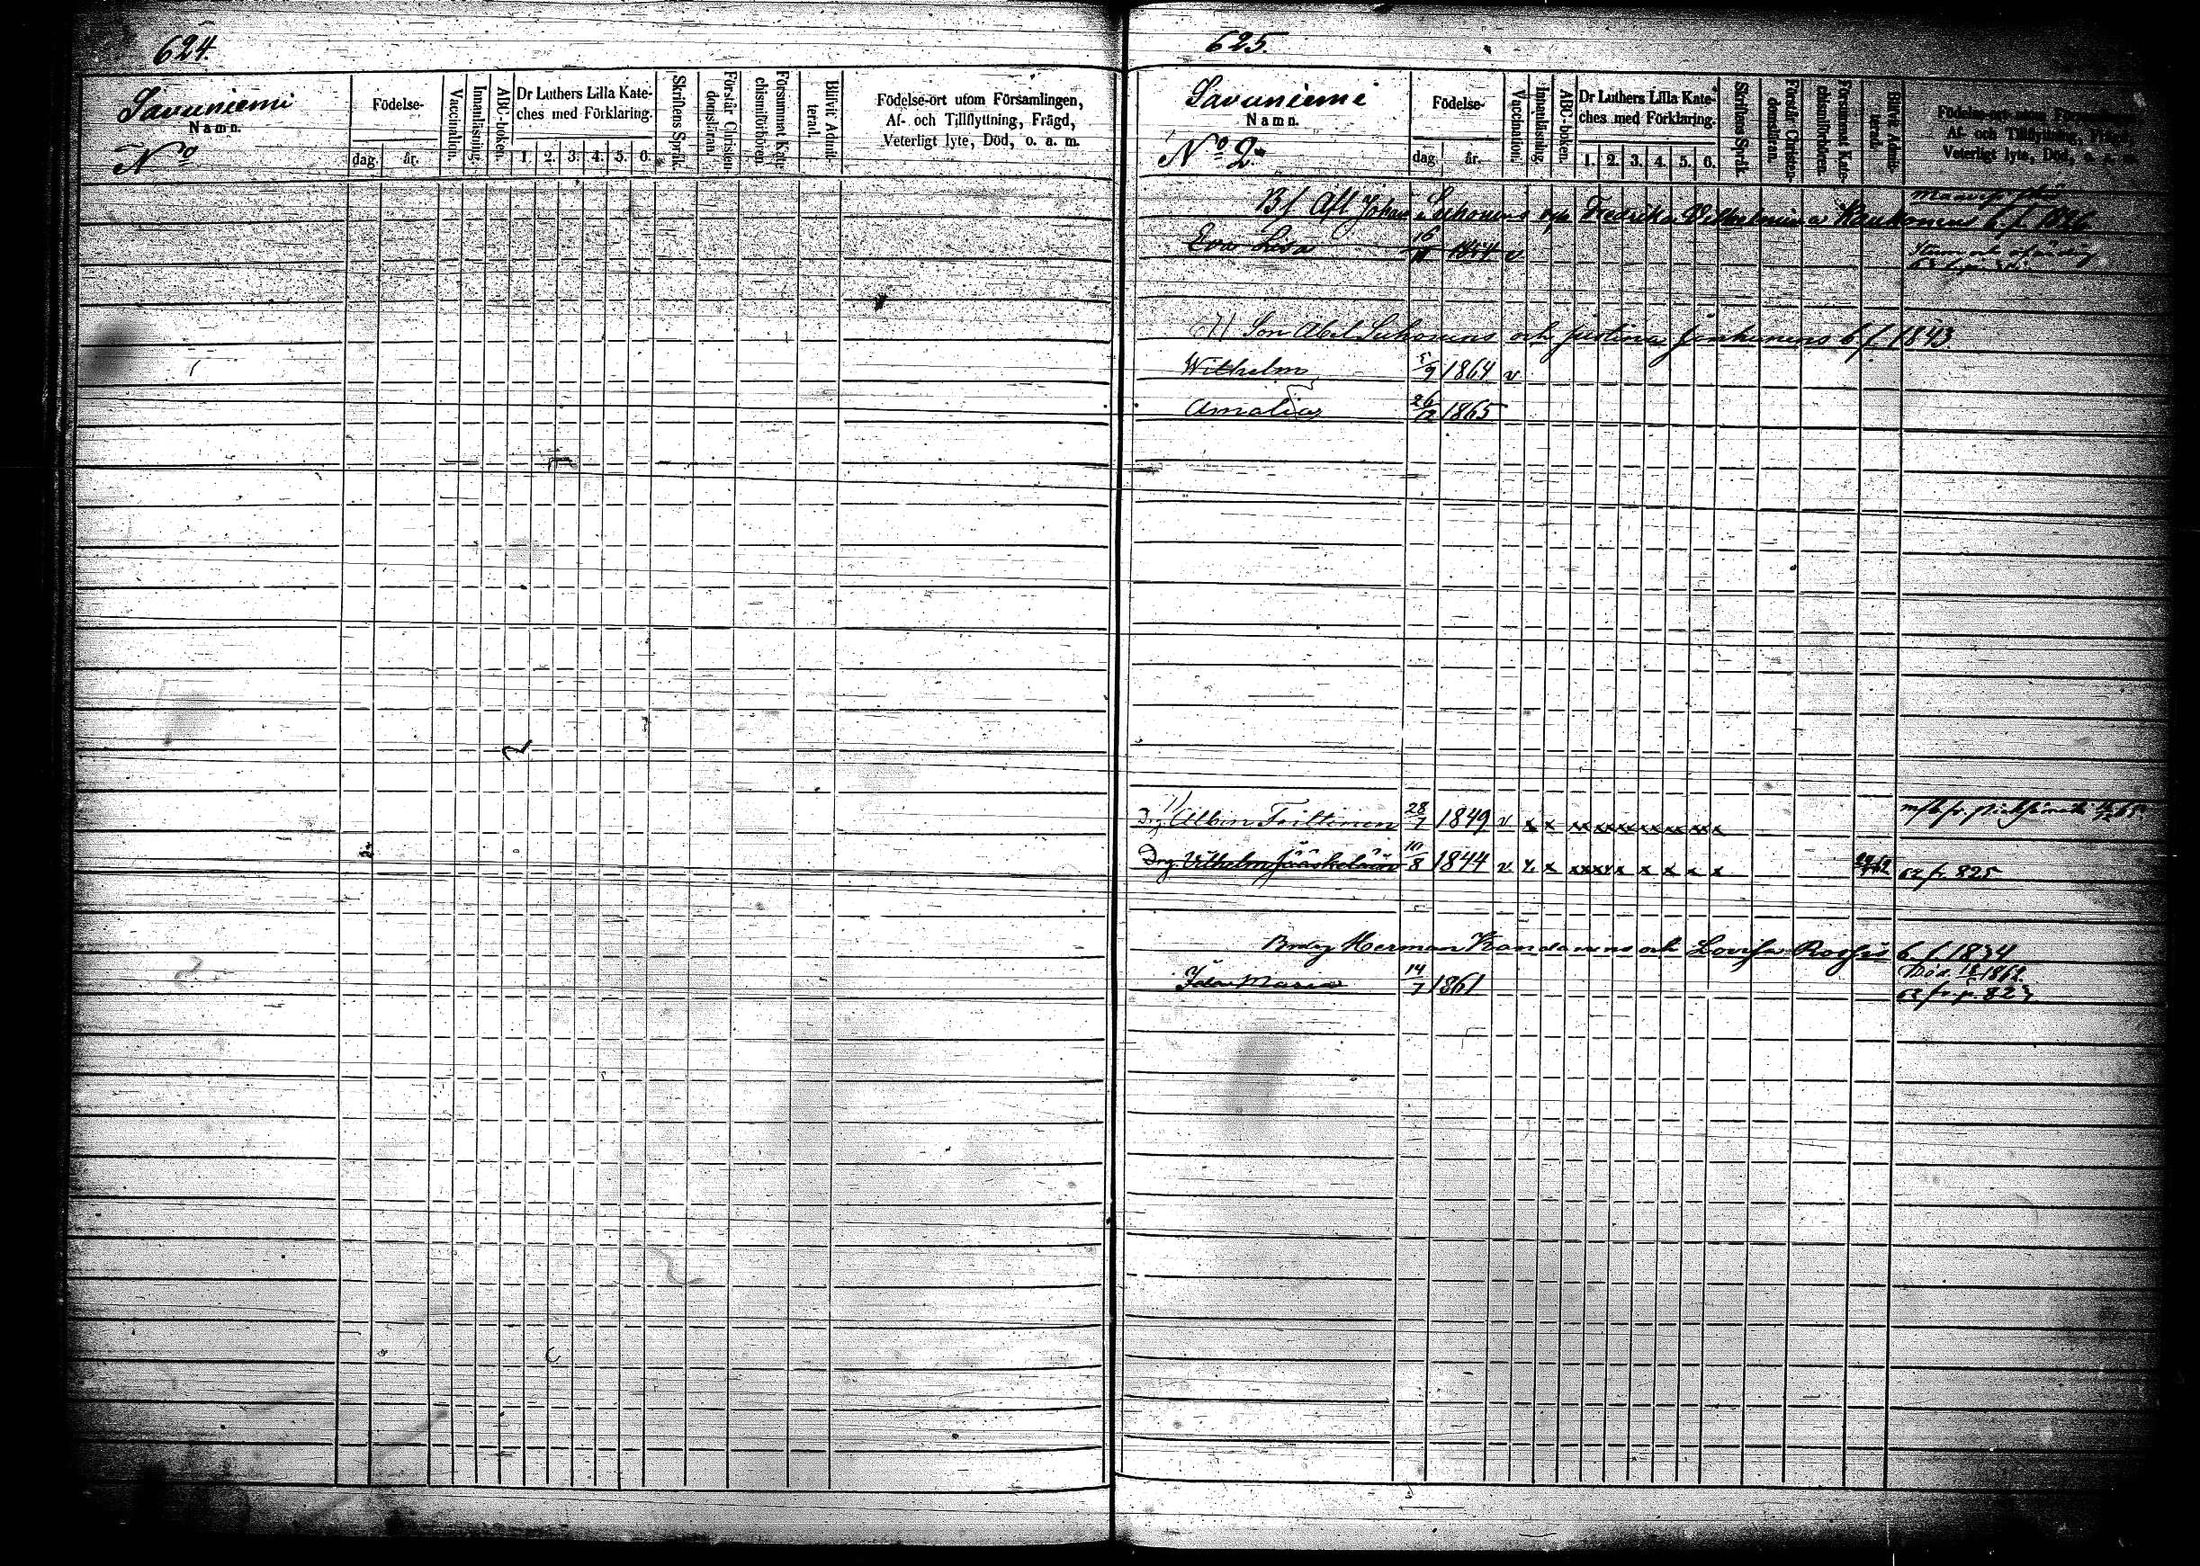 624.
Savuniemi
Namn.
No
Födelse-
dag. år.
Vaccination.
Innanläsning.
ABC-boken.
Dr Luthers Lilla Kate-
ches med Förklaring.
1. 2. 3. 4. 5. 6.
Skriftens Språk.
Förstår Christen-
domsläran.
Försummat Kate-
chismiförhören.
Blifvit Admit-
terad.
Födelse-ort utom Församlingen,
Af- och Tillflyttning, Frägd,
Veterligt lyte, Död, o. a. m.
625.
Savuniemi
Namn.
No 2.
Födelse-
dag. år.
Vaccination.
Innanläsning.
ABC-boken.
Dr Luthers Lilla Kate-
ches med Förklaring.
1. 2. 3. 4. 5. 6.
Skriftens Språk.
Förstår Christen-
domsläran.
Försummat Kate-
chismiförhören.
Blifvit Admit-
terad.
Födelse-ort utom Församlingen,
Af- och Tillflyttning, Frägd,
Veterligt lyte, Död, o. a. m.
Bf Afl Johan Suhonens och Fredrika Wilhelmina Kaukonens b. f. 1826
Eva Lisa 16 1844 v
Son Abel Suhonens och Justina b. f. 1843
Wilhelm 5/9 1864 v
Amalia 26/12 1865
Drg. Albin 28/7 1849 v x x xx xx xx xx xx xx x
Drg. Vilhelm Jääskeläin 10/8 1844 v x x xxxx x x x x x fr. 825
Herman och Lovisa b. f. 1834
Död 1862
Ida Maria 14/7 1861 fr. p. 82